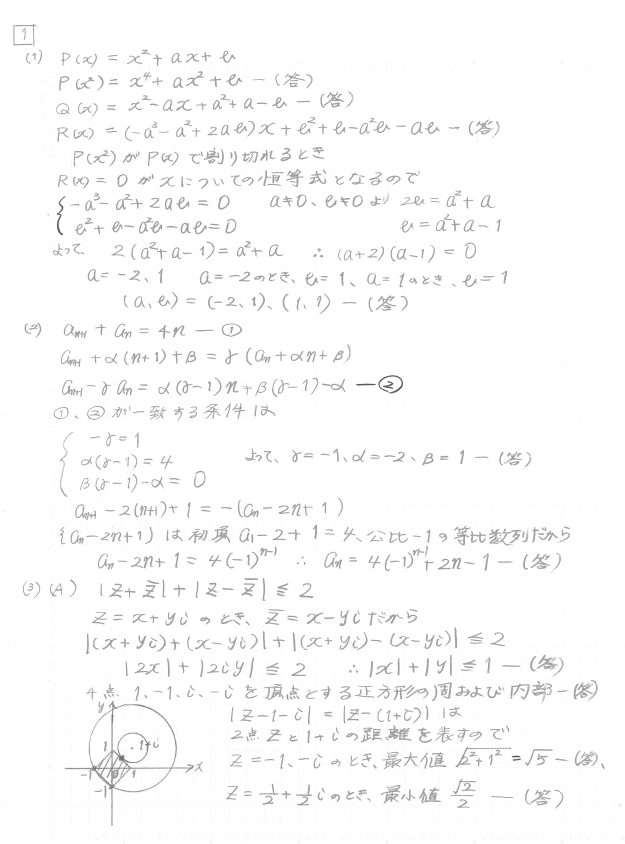 1
(1) P(x) = x² + ax + b
P(x²) = x⁴ + ax² + b ―(答)
Q(x) = x² - ax + a² + a - b ―(答)
R(x) = (-a³ - a² + 2ab)x + b² + b - a²b - ab ―(答)
P(x²)がP(x)で割り切れるとき
R(x) = 0がxについての恒等式となるので
{ -a³ - a² + 2ab = 0 a≠0、b≠0より 2b = a² + a
b² + b - a²b - ab = 0 b = a² + a - 1
よって 2(a² + a - 1) = a² + a ∴ (a+2)(a-1) = 0
a = -2、1 a = -2のとき、b = 1、a = 1のとき、b = 1
(a, b) = (-2, 1)、(1, 1) ―(答)
(2) aₙ₊₁ + aₙ = 4n ― ①
aₙ₊₁ + α(n+1) + β = γ(aₙ + αn + β)
aₙ₊₁ - γaₙ = α(γ-1)n + β(γ-1) - α ― ②
①、②が一致する条件は
{ -γ = 1
α(γ-1) = 4 よって、γ = -1、α = -2、β = 1 ―(答)
β(γ-1) - α = 0
aₙ₊₁ - 2(n+1) + 1 = -(aₙ - 2n + 1)
{aₙ - 2n + 1}は初項a₁ - 2 + 1 = 4、公比-1の等比数列だから
aₙ - 2n + 1 = 4(-1)ⁿ⁻¹ ∴ aₙ = 4(-1)ⁿ⁻¹ + 2n - 1 ―(答)
(3) (A) |z + z̄| + |z - z̄| ≦ 2
z = x + yi のとき、z̄ = x - yi だから
|(x + yi) + (x - yi)| + |(x + yi) - (x - yi)| ≦ 2
|2x| + |2iy| ≦ 2 ∴ |x| + |y| ≦ 1 ―(答)
4点 1、-1、i、-i を頂点とする正方形の周および内部 ―(答)
|z - 1 - i| = |z - (1+i)| は
2点zと1+iの距離を表すので
z = -1、-i のとき、最大値 √(2² + 1²) = √5 ―(答)、
z = 1/2 + 1/2 i のとき、最小値 √2/2 ―(答)
y
1
1+i
-1
0
1
x
-1